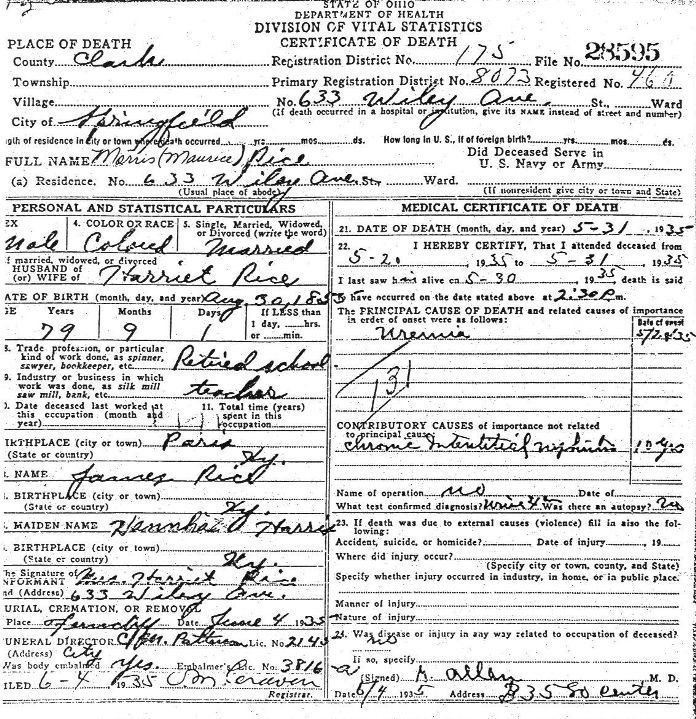 STATE OF OHIO
DEPARTMENT OF HEALTH
DIVISION OF VITAL STATISTICS
CERTIFICATE OF DEATH
PLACE OF DEATH
County Clark Registration District No. 175 File No. 28595
Township Primary Registration District No. 8073 Registered No. 460
Village No. 633 Wiley Ave. St., Ward
City of Springfield (If death occurred in a hospital or institution, give its NAME instead of street and number)
gth of residence in city or town where death occurred yrs. mos. ds. How long in U. S., if of foreign birth? yrs. mos. ds.
FULL NAME Morris (Maurice) Rice Did Deceased Serve in U. S. Navy or Army
(a) Residence. No 633 Wiley Ave. St. Ward.
(Usual place of abode) (If nonresident give city or town and State)
PERSONAL AND STATISTICAL PARTICULARS
EX 4. COLOR OR RACE 5. Single, Married, Widowed, or Divorced (write the word)
Male Colored Married
f married, widowed, or divorced
HUSBAND of
(or) WIFE of Harriet Rice
ATE OF BIRTH (month, day, and year) Aug. 30, 1855
GE Years Months Days If LESS than 1 day, hrs. or min.
79 9 1
8. Trade, profession, or particular kind of work done, as spinner, sawyer, bookkeeper, etc. Retired school
9. Industry or business in which work was done, as silk mill saw mill, bank, etc. teacher
0. Date deceased last worked at this occupation (month and year) 11. Total time (years) spent in this occupation
IRTHPLACE (city or town) Paris
(State or country) Ky.
. NAME James Rice
. BIRTHPLACE (city or town)
(State or country) Ky.
. MAIDEN NAME Hannha Harris
. BIRTHPLACE (city or town)
(State or country) Ky.
The Signature of
NFORMANT Mrs. Harriet Rice
nd (Address) 633 Wiley Ave.
URIAL, CREMATION, OR REMOVAL
Place Ferncliff Date June 4 1935
UNERAL DIRECTOR C M. Patterson Lic. No. 2145
(Address) City
Was body embalmed Yes. Embalmer's Lic. No. 3816
ILED 6-4 1935
Registrar.
MEDICAL CERTIFICATE OF DEATH
21. DATE OF DEATH (month, day, and year) 5-31, 1935
22. I HEREBY CERTIFY, That I attended deceased from
5-20, 1935 to 5-31, 1935
I last saw h alive on 5-30 1935 death is said
to have occurred on the date stated above at 2:30 P.m.
The PRINCIPAL CAUSE OF DEATH and related causes of importance
in order of onset were as follows: Date of onset
Uremia
131
CONTRIBUTORY CAUSES of importance not related
to principal cause:
Chronic Interstitial Nephritis 10 yrs
Name of operation no Date of
What test confirmed diagnosis? Was there an autopsy? no
23. If death was due to external causes (violence) fill in also the following:
Accident, suicide, or homicide? Date of injury , 19
Where did injury occur?
(Specify city or town, county, and State)
Specify whether injury occurred in industry, in home, or in public place.
Manner of injury
Nature of injury
24. Was disease or injury in any way related to occupation of deceased?
no
If so, specify
(Signed) Allan M. D.
Date 6/4 1935 Address 835 So Center